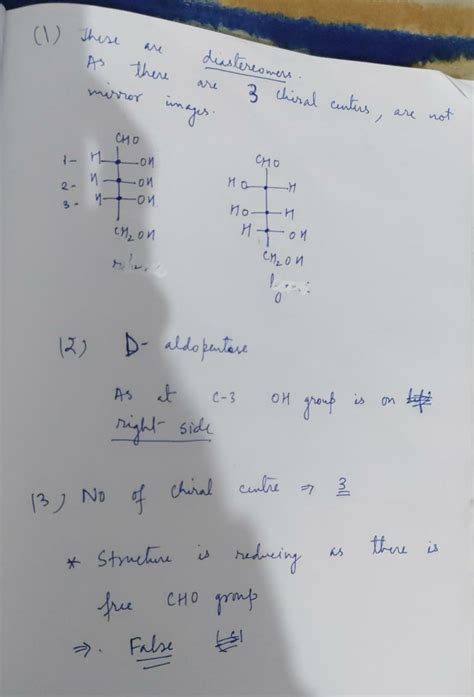 (1) These are diastereomers.
As there are 3 chiral centers, are not
mirror images.
CHO
1- H OH
2- H OH
3- H OH
CH2OH
CHO
HO H
HO H
H OH
CH2OH
(2) D- aldopentose
As at C-3 OH group is on
right side
(3) No of chiral centre ⇒ 3
* Structure is reducing as there is
free CHO group
⇒. False